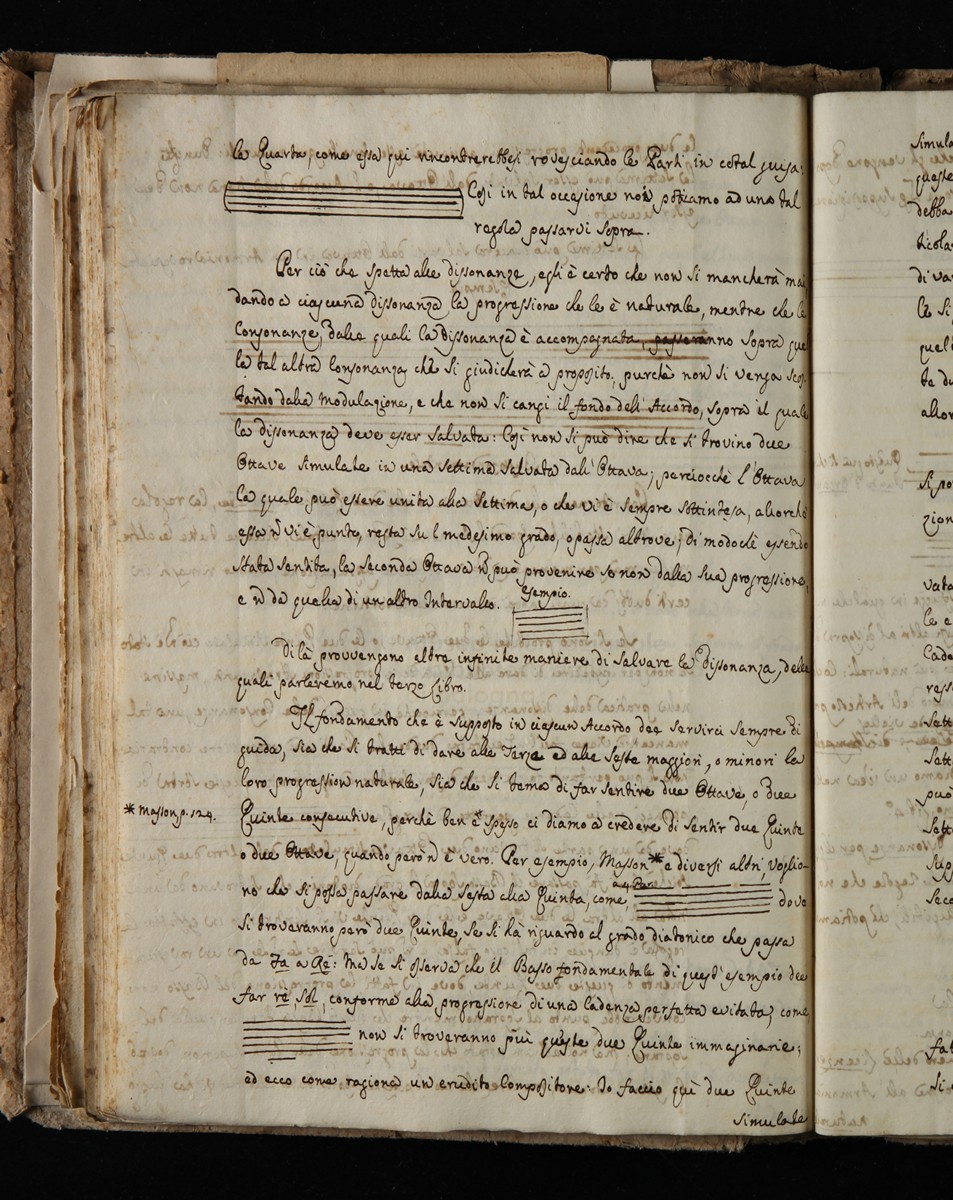 la Quarta, come essa qui rincontrerebbesi rovesciando le Parti in cotal guisa:
Così in tal occasione non possiamo ad una tal
regola passarvi sopra.
Per ciò che spetta alle dissonanze, egli è certo che non si mancherà mai
dando a ciascuna dissonanza la progressione che le è naturale, mentre che le
Consonanze, dalle quali la dissonanza è accompagnata, passeranno sopra quel
la tal altra Consonanza che si giudicherà a proposito, purchè non si venga scos
tando dalla modulazione, e che non si cangi il fondo dell'Accordo, sopra il quale
la dissonanza deve esser salvata: Così non si può dire che si trovino due
Ottave simulate in una settima salvata dall'Ottava; perciocchè l'Ottava
la quale può essere unita alla settima, o che vi è sempre sottintesa, allorchè
essa ñ vi è punto, resta su l medesimo grado, o passa altrove; di modochè essendo
stata sentita, la seconda Ottava ñ può provenire se non dalla sua progressione,
e ñ da quella di un altro Intervallo. Esempio.
Di là provvengono altre infinite maniere di salvare la dissonanza, delle
quali parleremo nel terzo Libro.
Il fondamento che è supposto in ciascun Accordo dee servirci sempre di
guida, sia che si tratti di dare alle Terze ed alle seste maggiori, o minori la
loro progression naturale, sia che si tema di far sentire due Ottave, o due
* Masson p. 124.
Quinte consecutive, perchè ben spesso ci diamo a credere di sentir due Quinte
o due Ottave, quando però ñ è vero. Per esempio, Masson * e diversi altri, voglio-
no che si possa passare dalla sesta alla Quinta, come, a 4 Par. dove
si troveranno però due Quinte, se si hà riguardo al grado diatonico che passa
da Fa a Re: Ma se si osserva che il Basso fondamentale di quest'esempio dee
far rè, sol, conforme alla progressione di una Cadenza perfetta evitata, come
non si troveranno più queste due Quinte immaginarie;
ed ecco come ragiona un erudito Compositore: Io faccio quì due Quinte
simulate